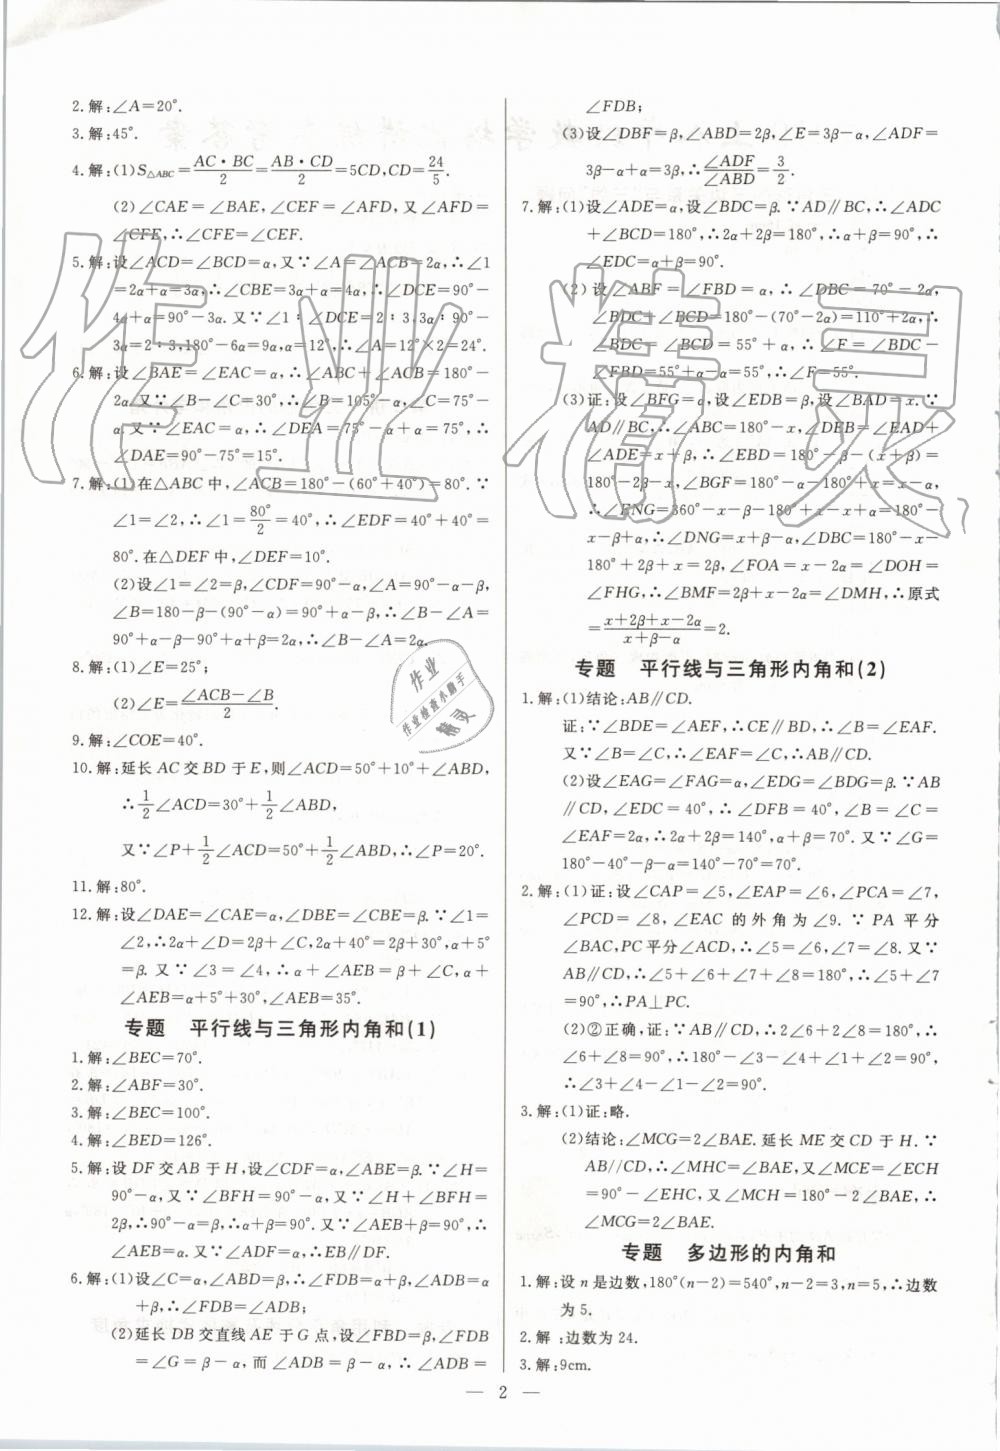 2.解:∠A=20°.
3.解:45°.
4.解:(1)S△ABC=AC·BC/2=AB·CD/2=5CD,CD=24/5.
(2)∠CAE=∠BAE,∠CEF=∠AFD,又∠AFD=
∠CFE,∴∠CFE=∠CEF.
5.解:设∠ACD=∠BCD=α,又∵∠A=∠ACB=2α,∴∠1
=2α+α=3α,∴∠CBE=3α+α=4α,∴∠DCE=90°-
4α+α=90°-3α.又∵∠1∶∠DCE=2∶3,3α∶90°-
3α=2∶3,180°-6α=9α,α=12°,∴∠A=12°×2=24°.
6.解:设∠BAE=∠EAC=α,∴∠ABC+∠ACB=180°-
2α,又∵∠B-∠C=30°,∴∠B=105°-α,∠C=75°-
α,又∵∠EAC=α,∴∠DEA=75°-α+α=75°,∴
∠DAE=90°-75°=15°.
7.解:(1)在△ABC中,∠ACB=180°-(60°+40°)=80°.∵
∠1=∠2,∴∠1=80°/2=40°,∴∠EDF=40°+40°=
80°.在△DEF中,∠DEF=10°.
(2)设∠1=∠2=β,∠CDF=90°-α,∠A=90°-α-β,
∠B=180-β-(90°-α)=90°+α-β,∴∠B-∠A=
90°+α-β-90°+α+β=2α,∴∠B-∠A=2α.
8.解:(1)∠E=25°;
(2)∠E=∠ACB-∠B/2.
9.解:∠COE=40°.
10.解:延长AC交BD于E,则∠ACD=50°+10°+∠ABD,
∴1/2∠ACD=30°+1/2∠ABD,
又∵∠P+1/2∠ACD=50°+1/2∠ABD,∴∠P=20°.
11.解:80°.
12.解:设∠DAE=∠CAE=α,∠DBE=∠CBE=β.∵∠1=
∠2,∴2α+∠D=2β+∠C,2α+40°=2β+30°,α+5°
=β.又∵∠3=∠4,∴α+∠AEB=β+∠C,α+
∠AEB=α+5°+30°,∠AEB=35°.
专题 平行线与三角形内角和(1)
1.解:∠BEC=70°.
2.解:∠ABF=30°.
3.解:∠BEC=100°.
4.解:∠BED=126°.
5.解:设DF交AB于H,设∠CDF=α,∠ABE=β.∵∠H=
90°-α,又∵∠BFH=90°-α,又∵∠H+∠BFH=
2β,∴90°-α=β,∴α+β=90°.又∵∠AEB+β=90°,∴
∠AEB=α.又∵∠ADF=α,∴EB∥DF.
6.解:(1)设∠C=α,∠ABD=β,∴∠FDB=α+β,∠ADB=α
+β,∴∠FDB=∠ADB;
(2)延长DB交直线AE于G点,设∠FBD=β,∠FDB
=∠G=β-α,而∠ADB=β-α,∴∠ADB=
∠FDB;
(3)设∠DBF=β,∠ABD=2β,∠E=3β-α,∠ADF=
3β-α+α=3β,∴∠ADF/∠ABD=3/2.
7.解:(1)设∠ADE=α,设∠BDC=β.∵AD∥BC,∴∠ADC
+∠BCD=180°,∴2α+2β=180°,∴α+β=90°,∴
∠EDC=α+β=90°.
(2)设∠ABF=∠FBD=α,∴∠DBC=70°-2α,
∠BDC+∠BCD=180°-(70°-2α)=110°+2α,∴
∠BDC=∠BCD=55°+α,∴∠F=∠BDC-
∠FBD=55°+α-α=55°,∴∠F=55°.
(3)证:设∠BFG=α,设∠EDB=β,设∠BAD=x.∵
AD∥BC,∴∠ABC=180°-x,∠DEB=∠EAD+
∠ADE=x+β,∴∠EBD=180°-β-(x+β)=
180°-2β-x,∠BGF=180°-α-180°+x=x-α,
∴∠FNG=360°-x-β-180°+x-x+α=180°-
x-β+α,∴∠DNG=x+β-α,∠DBC=180°-x-
180°+2β+x=2β,∠FOA=x-2α=∠DOH=
∠FHG,∴∠BMF=2β+x-2α=∠DMH,∴原式
=x+2β+x-2α/x+β-α=2.
专题 平行线与三角形内角和(2)
1.解:(1)结论:AB∥CD.
证:∵∠BDE=∠AEF,∴CE∥BD,∴∠B=∠EAF.
又∵∠B=∠C,∴∠EAF=∠C,∴AB∥CD.
(2)设∠EAG=∠FAG=α,∠EDG=∠BDG=β.∵AB
∥CD,∠EDC=40°,∴∠DFB=40°,∠B=∠C=
∠EAF=2α,∴2α+2β=140°,α+β=70°.又∵∠G=
180°-40°-β-α=140°-70°=70°.
2.解:(1)证:设∠CAP=∠5,∠EAP=∠6,∠PCA=∠7,
∠PCD=∠8,∠EAC的外角为∠9.∵PA平分
∠BAC,PC平分∠ACD,∴∠5=∠6,∠7=∠8.又∵
AB∥CD,∴∠5+∠6+∠7+∠8=180°,∴∠5+∠7
=90°,∴PA⊥PC.
(2)②正确,证:∵AB∥CD,∴2∠6+2∠8=180°,∴
∠6+∠8=90°,∴180°-∠3-∠4+∠1+∠2=90°,
∴∠3+∠4-∠1-∠2=90°.
3.解:(1)证:略.
(2)结论:∠MCG=2∠BAE.延长ME交CD于H.∵
AB//CD,∴∠MHC=∠BAE,又∠MCE=∠ECH
=90°-∠EHC,又∠MCH=180°-2∠BAE,∴
∠MCG=2∠BAE.
专题 多边形的内角和
1.解:设n是边数,180°(n-2)=540°,n-2=3,n=5,∴边数
为5.
2.解:边数为24.
3.解:9cm.
— 2 —
作业精灵
作业
作业检查小助手
精灵